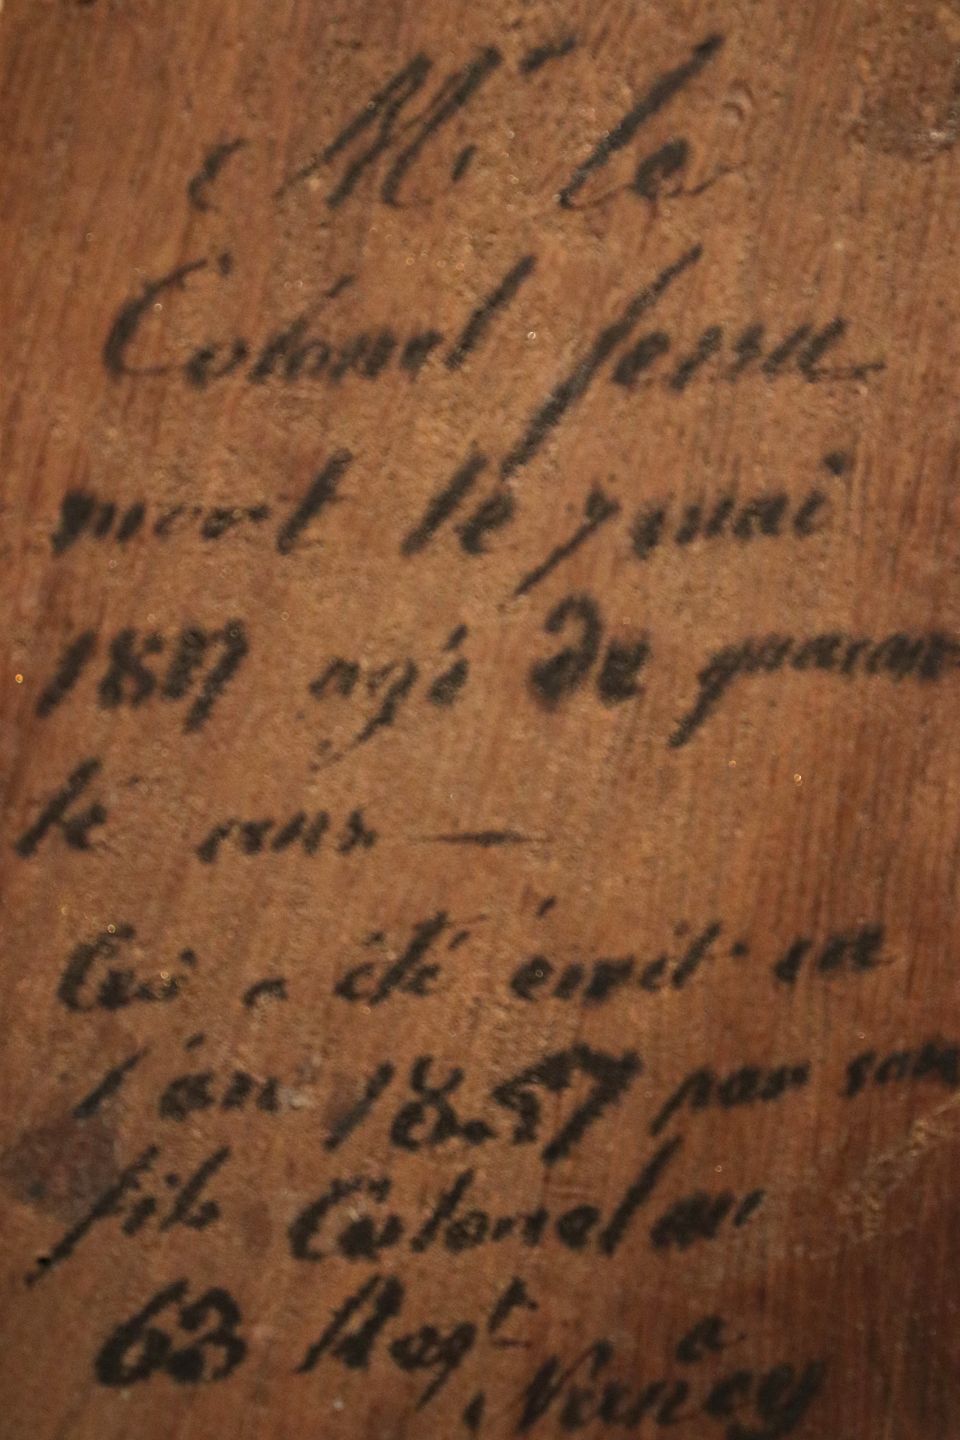 Mr le
Colonel
mort le 7 mai
18 agé de quaran
te ans —
Ceci a été écrit en
l'an 1857 par son
fils Colonel au
63 Regt à
Nancy